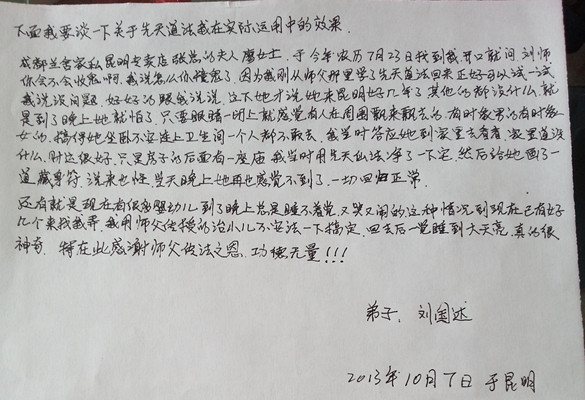 下面我要谈一下关于先天道法我在实际运用中的效果.
成都兰舍家私昆明专卖店张总的夫人廖女士,于今年农历7月23日找到我开口就问,刘师
你会不会收惊啊,我说怎么你撞惊了,因为我刚从师父那里学了先天道法回来正好可以试一试
我说没问题,好好的跟我说说,这下她才说她来昆明好几年了其他的都没什么,就
是到了晚上她就怕了,只要眼睛一闭上就感觉有人在周围飘来飘去的,有时候男的有时候
女的.搞得她坐卧不安连上卫生间一个人都不敢去,我当时答应她到家里去看看,家里道没
什么,财运很好,只是房子的后面有一座庙,我当时用先天仙法净了一下宅,然后给她画了一
道藏身符,说来也怪,当天晚上她再也感觉不到了,一切回归正常.
还有就是现在有很多婴幼儿到了晚上总是睡不着觉,又哭又闹的,这种情况到现在已有好
几个来找我弄,我用师父传授的治小儿不安法一下搞定,回去后一觉睡到大天亮,真的很
神奇,特在此感谢师父放法之恩,功德无量!!!
弟子:刘国述
2013年10月7日于昆明